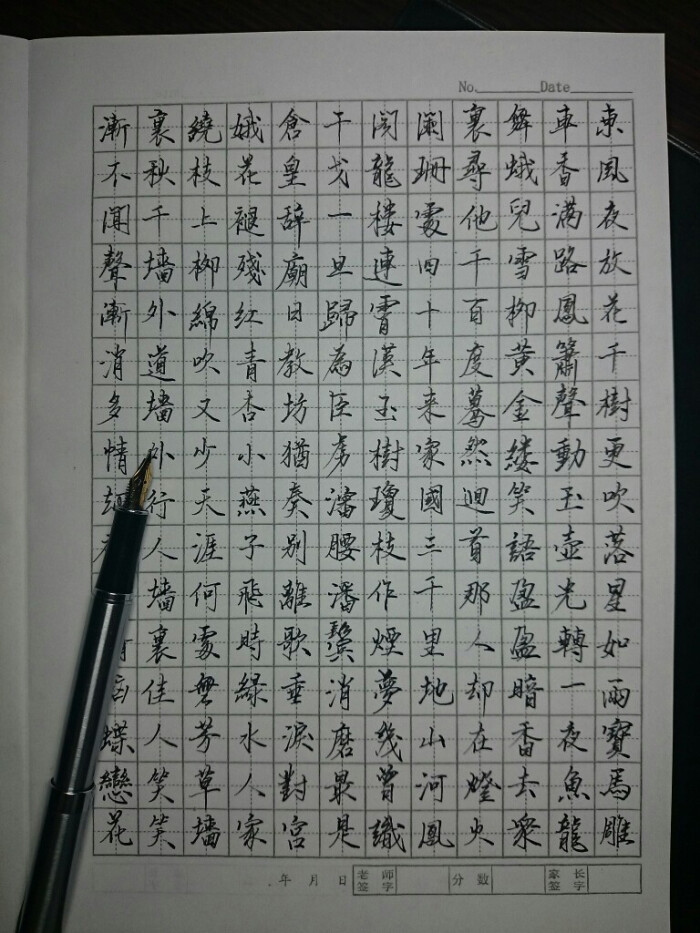 No. Date
東風夜放花千樹更吹落星如雨寶馬雕
車香滿路鳳簫聲動玉壺光轉一夜魚龍
舞蛾兒雪柳黃金縷笑語盈盈暗香去眾
裏尋他千百度驀然迴首那人却在燈火
闌珊處四十年來家國三千里地山河鳳
閣龍樓連霄漢玉樹瓊枝作煙夢幾曾識
干戈一旦歸為臣虜瀋腰潘鬢消磨最是
倉皇辭廟日教坊猶奏別離歌垂淚對宮
娥花褪殘紅青杏小燕子飛時綠水人家
繞枝上柳綿吹又少天涯何處無芳草墻
裏秋千墻外道墻外行人墻裏佳人笑笑
漸不聞聲漸消多情蝶戀花
年 月 日 老師簽字 分數 家长签字